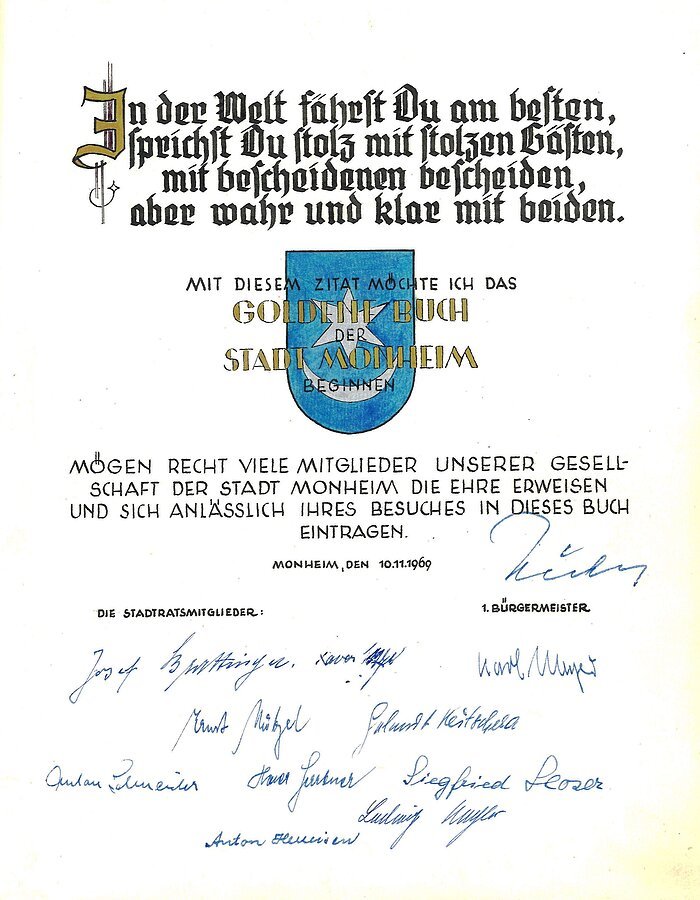 In der Welt fährst Du am besten,
sprichst Du stolz mit stolzen Gästen,
mit bescheidenen bescheiden,
aber wahr und klar mit beiden.
MIT DIESEM ZITAT MÖCHTE ICH DAS
GOLDENE BUCH
DER
STADT MONHEIM
BEGINNEN
MÖGEN RECHT VIELE MITGLIEDER UNSERER GESELL-
SCHAFT DER STADT MONHEIM DIE EHRE ERWEISEN
UND SICH ANLÄSSLICH IHRES BESUCHES IN DIESES BUCH
EINTRAGEN.
MONHEIM, DEN 10.11.1969
DIE STADTRATSMITGLIEDER:
1. BÜRGERMEISTER
Josef Xaver
Karl Mayer
Ernst
Anton Siegfried
Ludwig
Anton